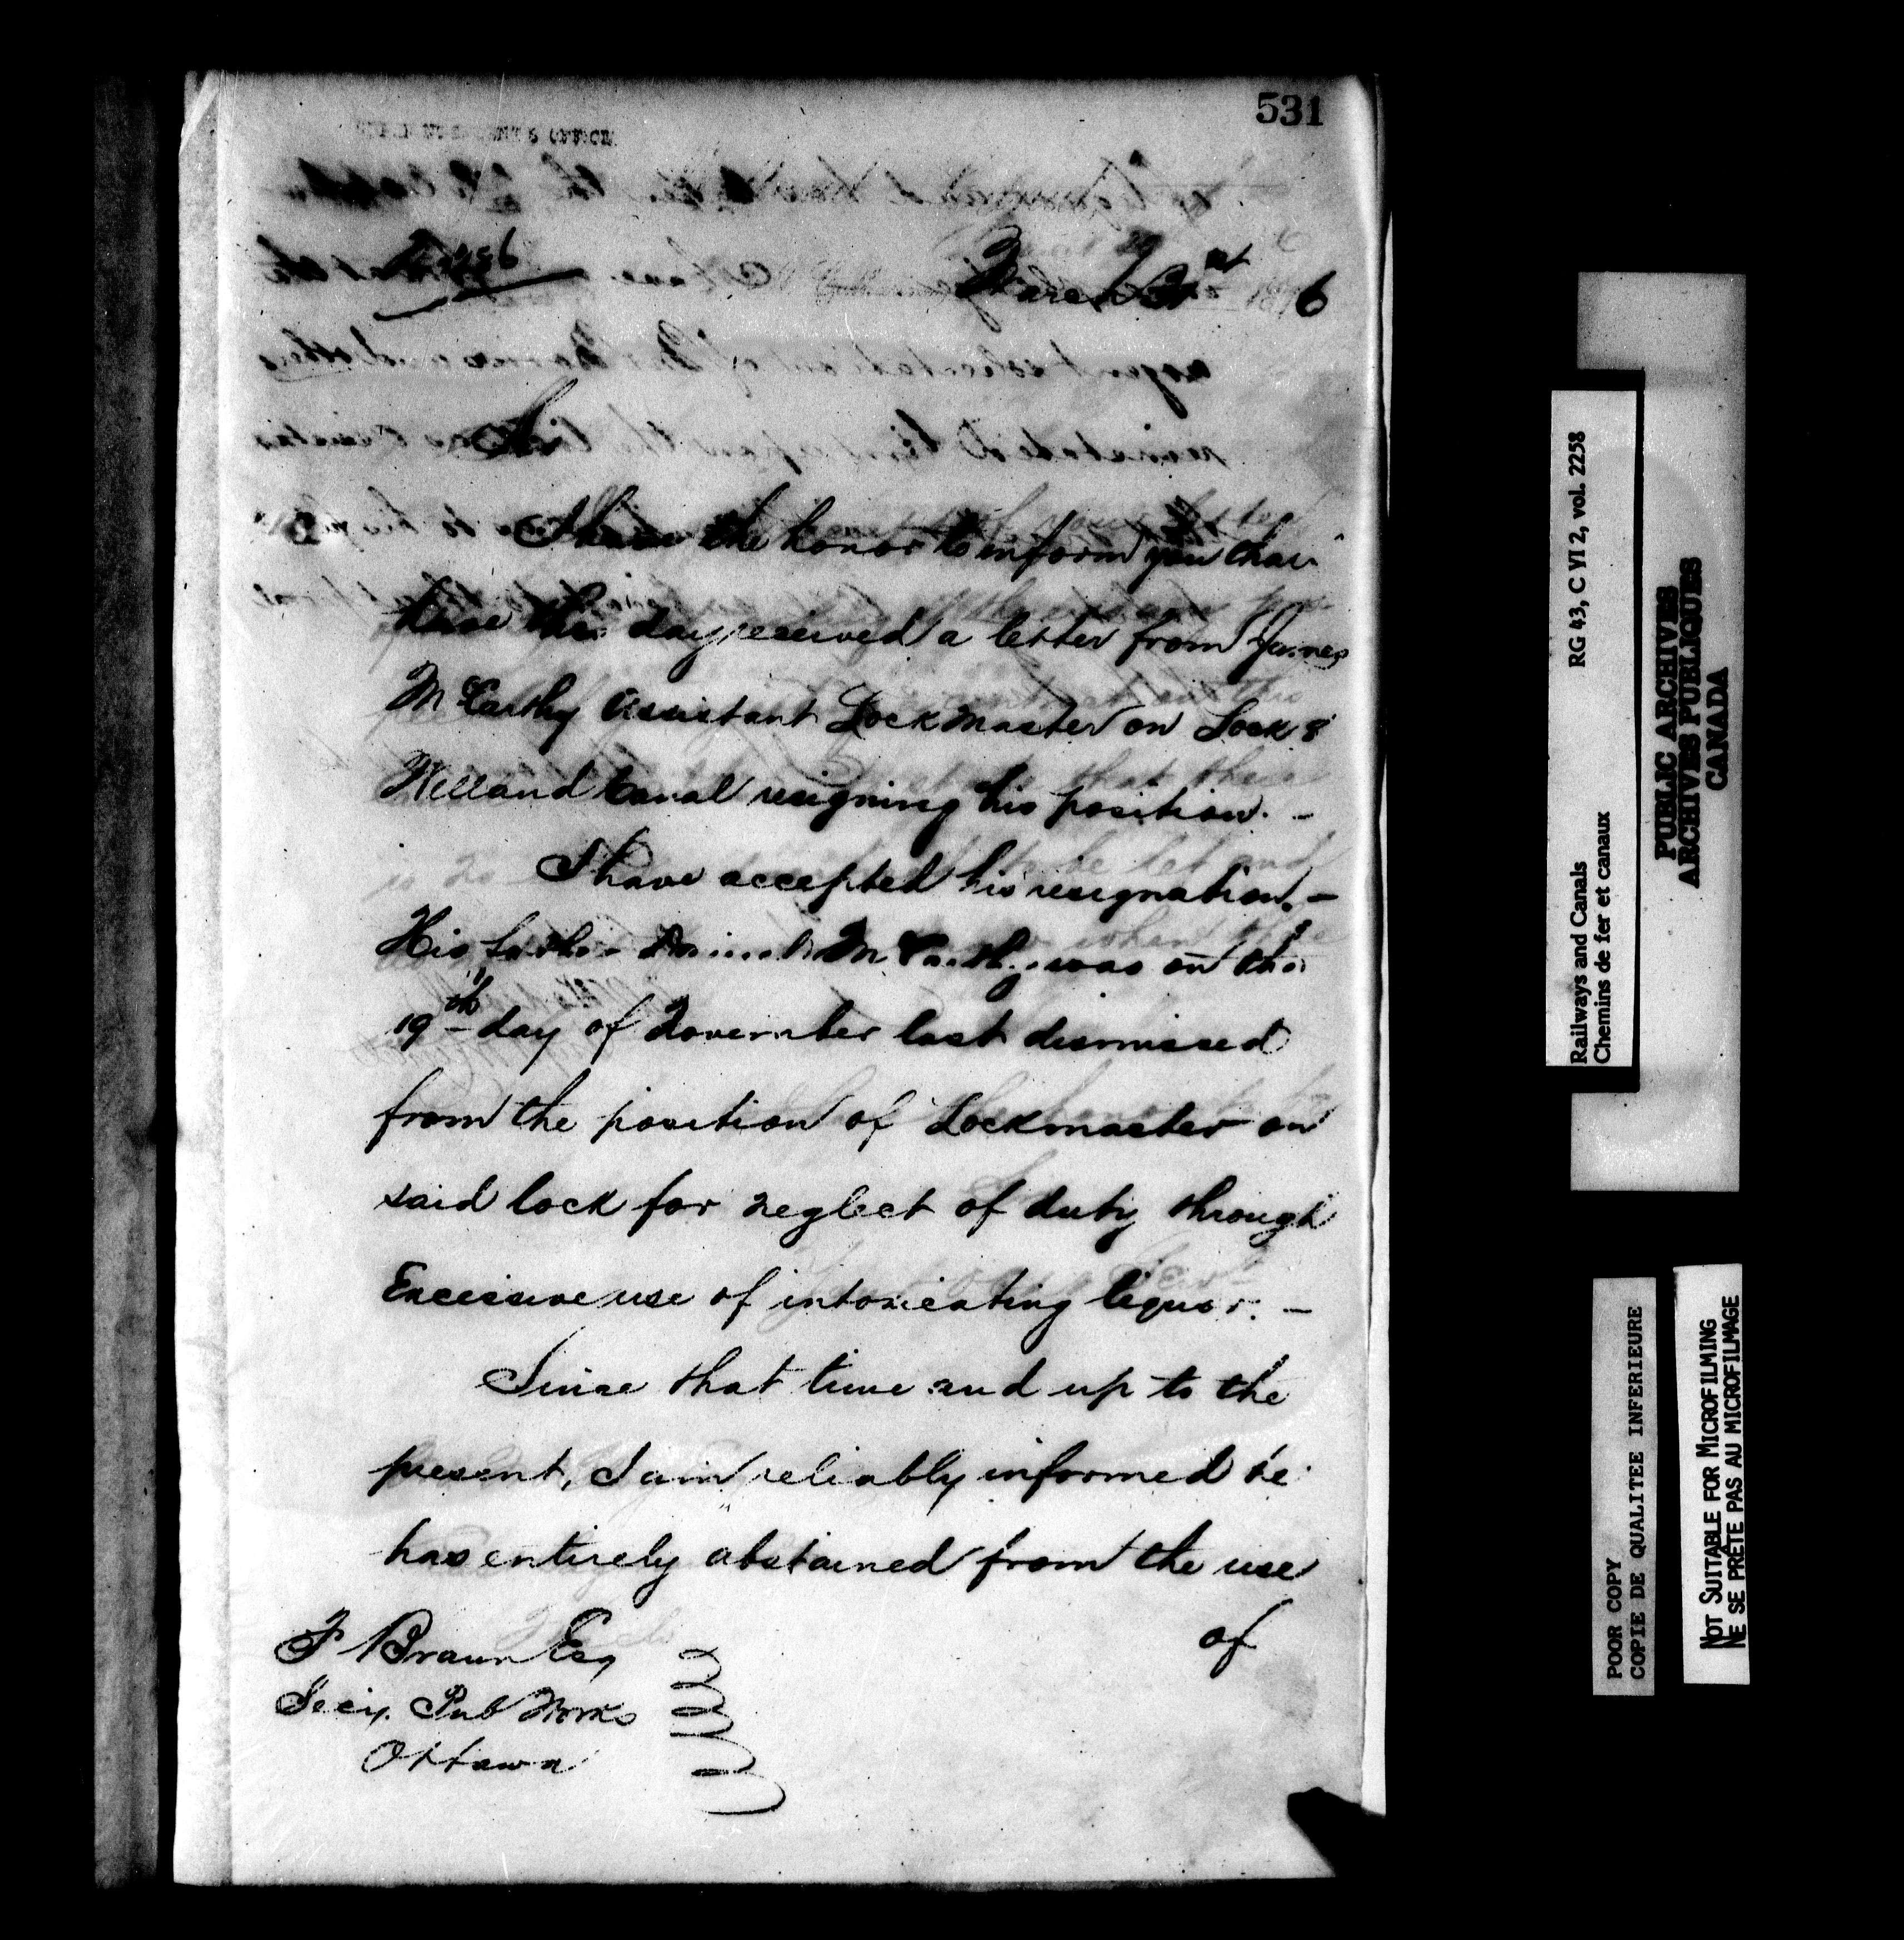 531
March 31st 1876
Sir
I have the honor to inform you that
have this day received a letter from James
McCarthy assistant Lockmaster on Lock 8
Welland Canal resigning his position. -
I have accepted his resignation. -
His father McCarthy was on the
19th day of November last dismissed
from the position of Lockmaster on
said lock for neglect of duty through
Excessive use of intoxicating liquor. -
Since that time and up to the
present, I am reliably informed he
has entirely abstained from the use
of
F Braun Esq
Secy. Pub Works
Ottawa
RG 43, C VI 2, vol. 2258
Railways and Canals
Chemins de fer et canaux
PUBLIC ARCHIVES
ARCHIVES PUBLIQUES
CANADA
POOR COPY
COPIE DE QUALITEE INFERIEURE
NOT SUITABLE FOR MICROFILMING
NE SE PRÊTE PAS AU MICROFILMAGE